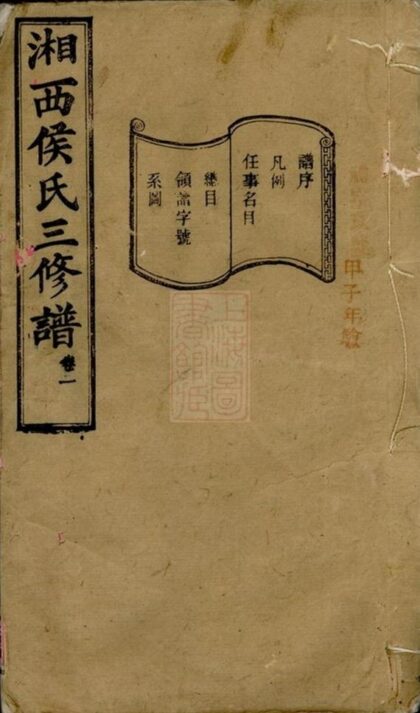 湘西侯氏三修譜 卷一
譜序
凡例
任事名目
總目
領譜字號
系圖
上海圖
書館藏
甲子年